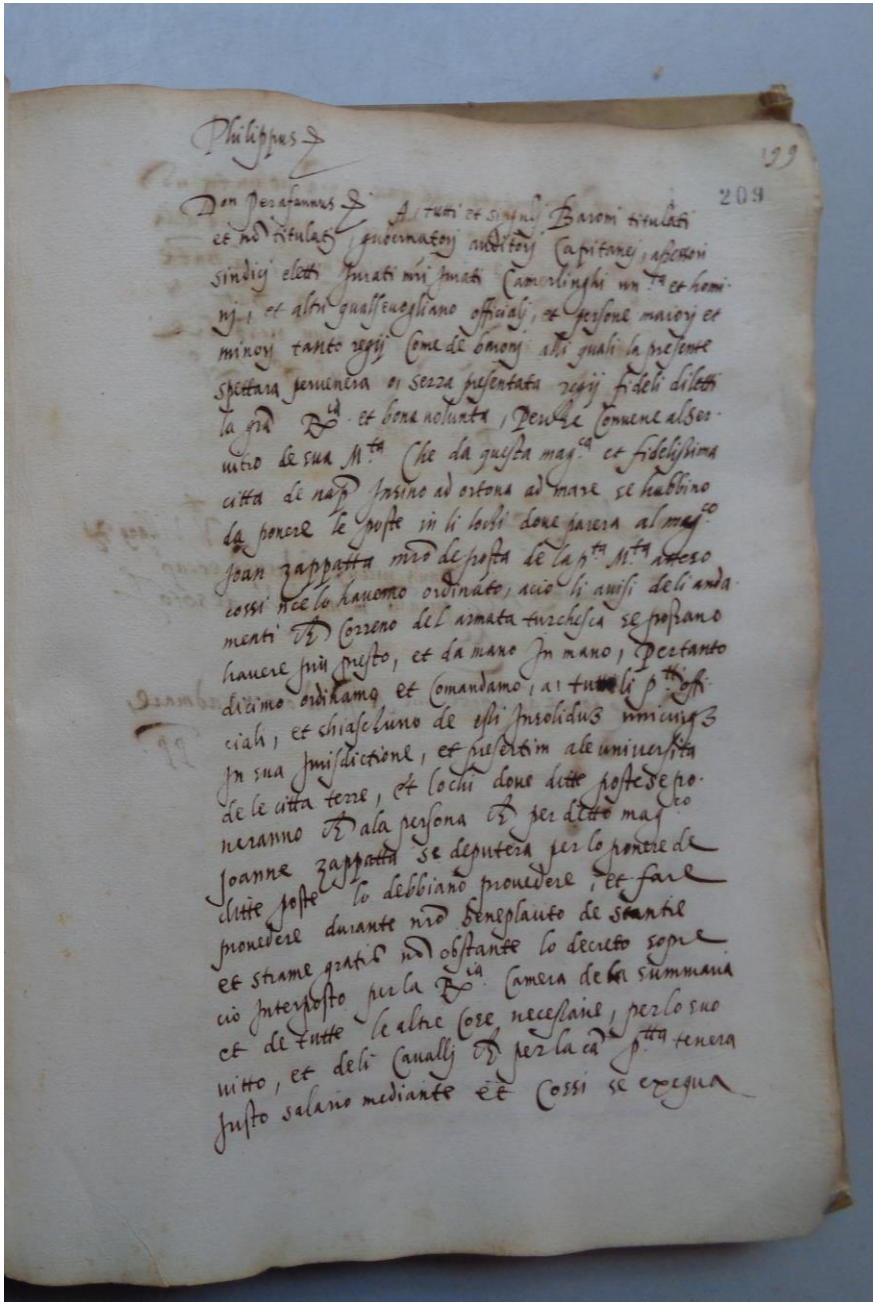 Philippus &
199
209
Don Perafannus & A tutti et singulj Baroni titulati
et nō titulatj, gubernatorj auditorj Capitanej, assessori
sindicj eletti Jurati mrī Jurati Camerlinghi un.ta et homi-
nj, et altri qualsevogliano officialj, et persone maiorj et
minorj tanto regij Come de baronj alli quali la presente
spettara pervenera o serra presentata regij fideli diletti
la grā Ria. et bona volunta, Perche Convene al ser-
vitio de sua M.ta Che da questa mag.ca et fidelissima
citta de nap. Insino ad ortona ad mare se habbino
da ponere le poste in li lochi dove parera al mag.co
Joan zappatta mrō de posta de la p.ta M.ta atteso
cossi nce lo havemo ordinato, acio li avisi deli anda-
menti Correno del armata turchesca se possano
havere più presto, et da mano In mano, Pertanto
dicimo ordinamo et Comandamo, a tutti li p.tti offi-
ciali, et chiaschuno de essi Insolidu3 unicuiq3
In sua Jurisdictione, et presertim ale universita
de le citta terre, et lochi dove ditte poste se po-
neranno ala persona per detto mag.co
Joanne zappatta se deputera per lo ponere de
ditte poste lo debbiano provedere, et fare
provedere durante nrō beneplacito de stantie
et strame gratis nō obstante lo decreto sopre
cio Interposto per la Ria. Camera de la summaria
et de tutte le altre Cose necessarie, per lo suo
vitto, et deli Cavallj per la cā p.tta tenera
Justo salario mediante et Cossi se exequa